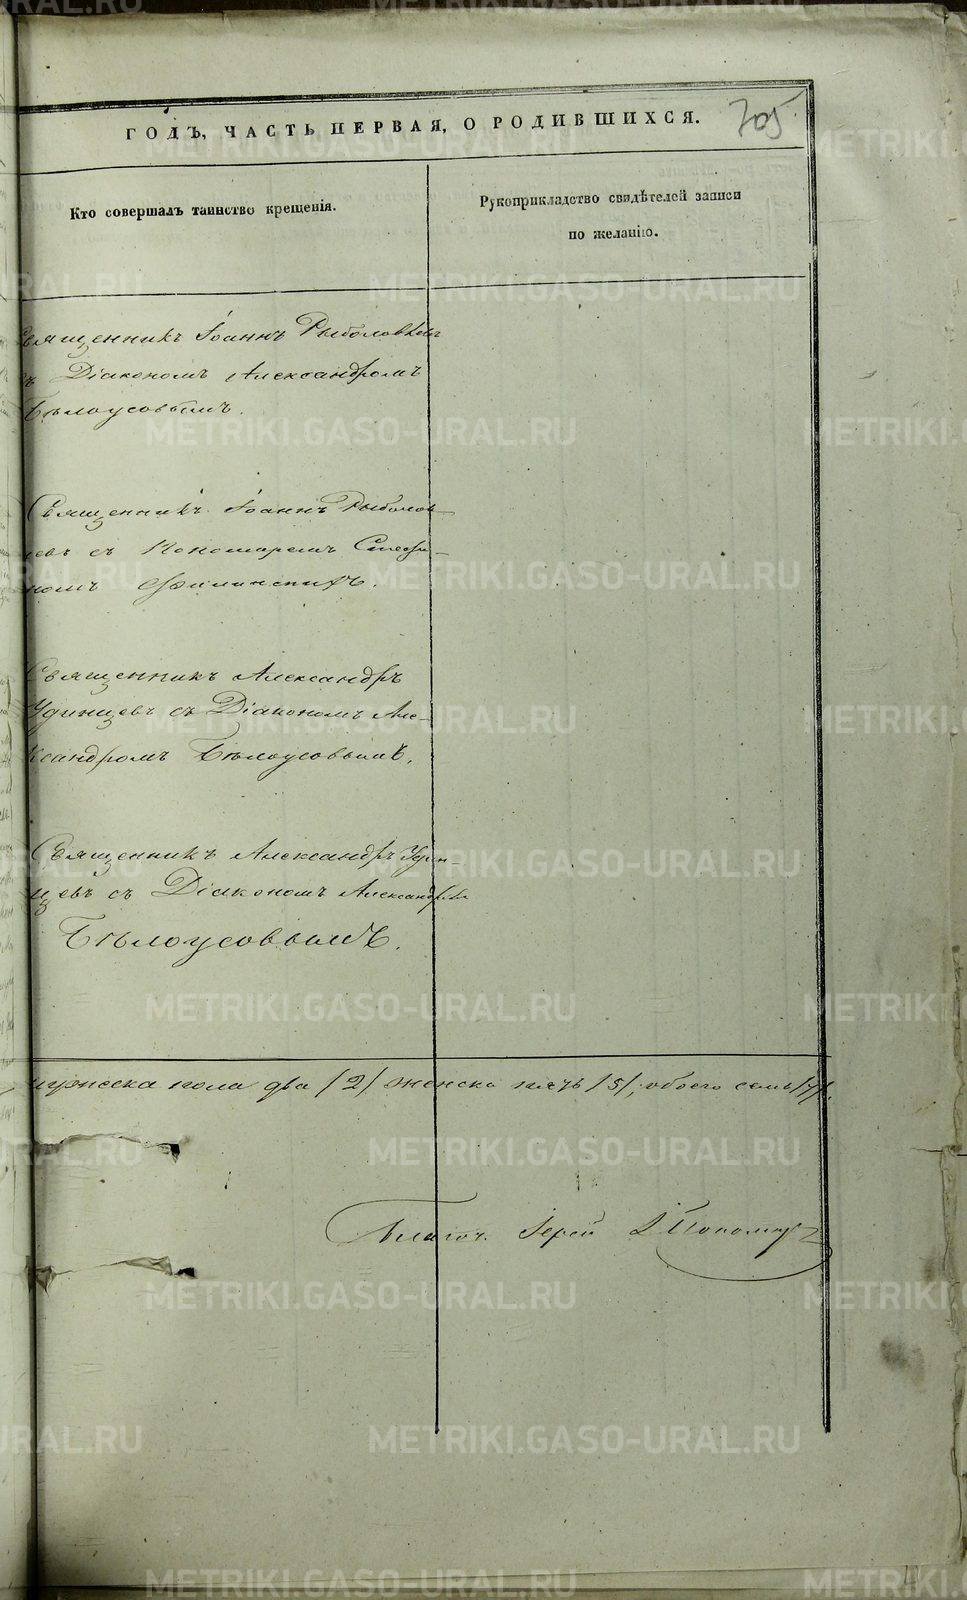 ГОДЪ, ЧАСТЬ ПЕРВАЯ, О РОДИВШИХСЯ.
705
Кто совершалъ таинство крещенія.
Рукоприкладство свидѣтелей записи
по желанію.
Священникъ Іоаннъ Рыболовлевъ
съ Діакономъ Александромъ
Бѣлоусовымъ.
Священникъ Іоаннъ Рыболов-
левъ съ Пономаремъ Стефа-
номъ
Священникъ Александръ
Удинцевъ съ Діакономъ Але-
ксандромъ Бѣлоусовымъ.
Священникъ Александръ Удин-
цевъ съ Діакономъ Александромъ
Бѣлоусовымъ.
мужеска пола два /2/, женска пять /5/, обоего семь /7/.
Благоч. Іерей
METRIKI.GASO-URAL.RU